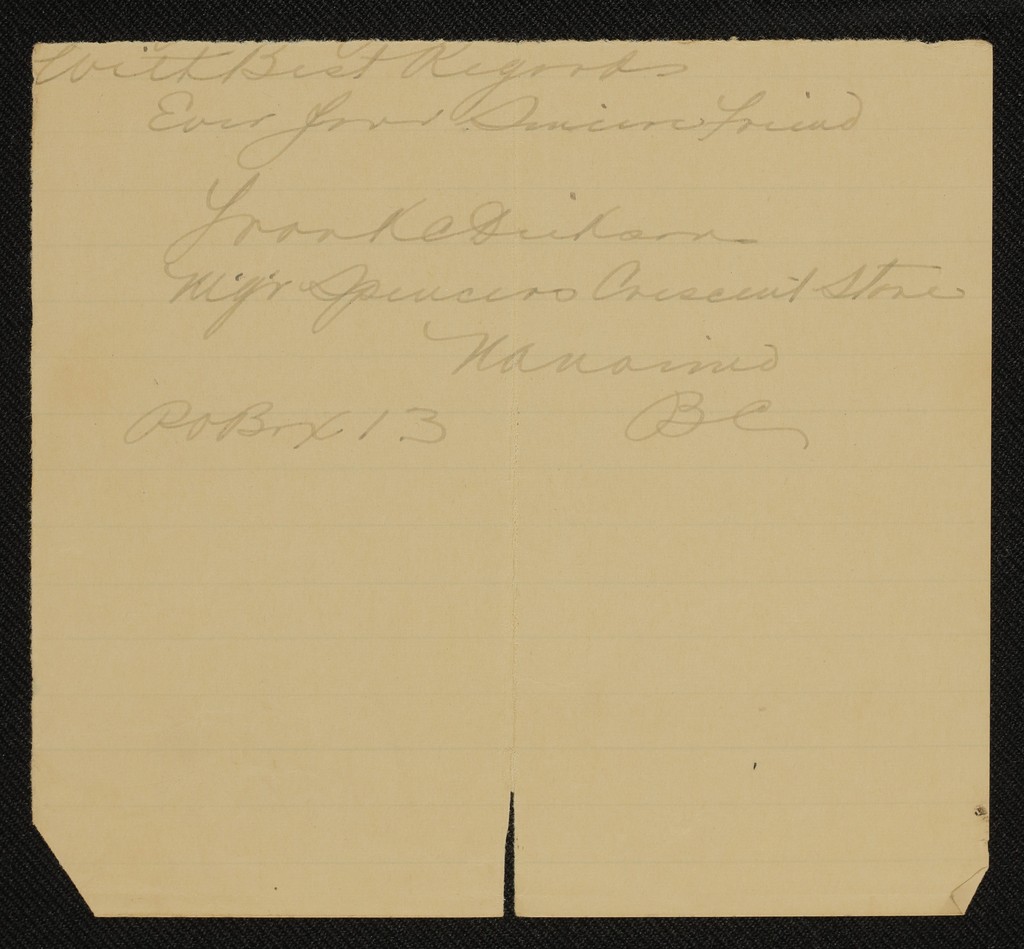 With Best Regards
Ever your Sincere Friend
Frank C Dickson
Mgr Spencers Crescent Store
Nanaimo
PO Box 13 BC